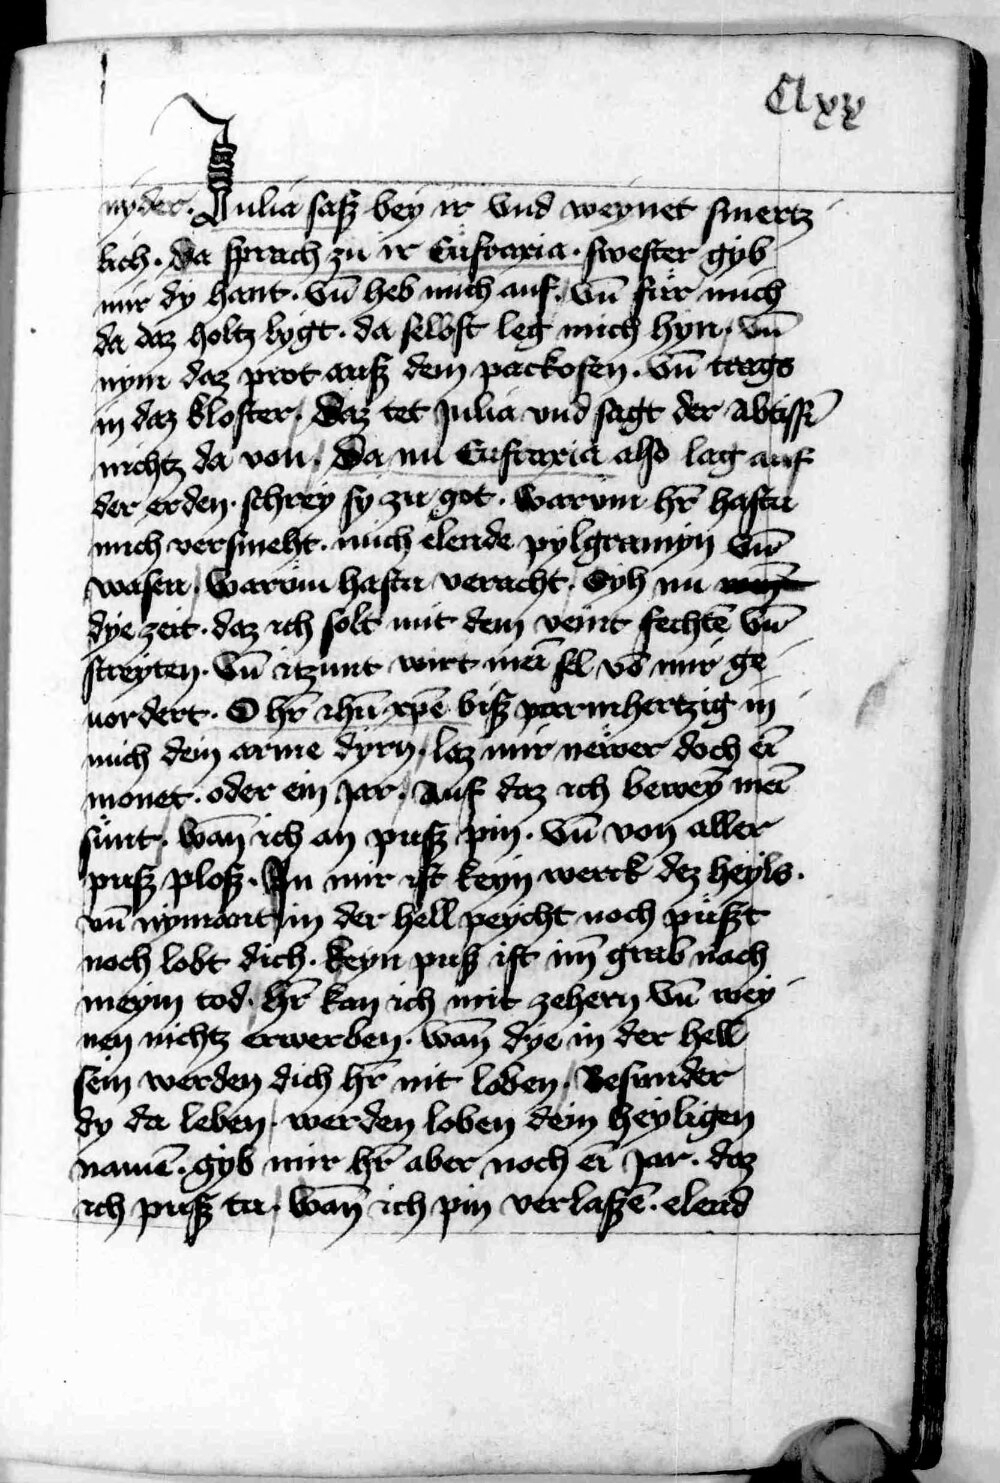 Clxx
nyder. Julia sasz bey ir vnd weynet smertz
lich. Da sprach zu ir Eufraxia. swester gyb
mir dy hant. vn̄ heb mich auf. vn̄ für mich
da daz holtz lygt. da selbst leg mich hyn. vn̄
nym daz prot ausz dem packofen. vn̄ trags
in daz kloster. Daz tet Julia vnd sagt der abtissī
nichtz da von. Da nu Eufraxia also lag auf
der erden. schrey sy zu got. warüm hr̄ hastu
mich versmeht. mich elende pylgramyn vn̄
wasen. Warüm hastu veracht. Syh nu
dye zeit. daz ich solt mit dem veint fechtē vn̄
streyten. vn̄ itzunt wirt meī sel vō mir ge
uordert. O hr̄ ihū xpē bisz parmhertzig in
mich dein arme dyrn. laz mir newer doch eī
monet. oder ein Jar. Auf daz ich beweȳ meī
sünt. wan̄ ich an pusz pin. vn̄ von aller
pusz plosz. In mir ist keyn werck dez heyls.
vn̄ nymant in der hell peycht noch püszt
noch lobt dich. keyn pusz ist im̄ grab nach
meym tod. hr̄ kan ich mit zehern vn̄ wey
nen nichtz erwerben. wan̄ dye in der hell
sein werden dich hr̄ nit loben. Besunder
dy da leben. werden loben dein heyligen
namē. gyb mir hr̄ aber noch eī Jar. daz
ich pusz tu. wan̄ ich pin verlaszē. elend